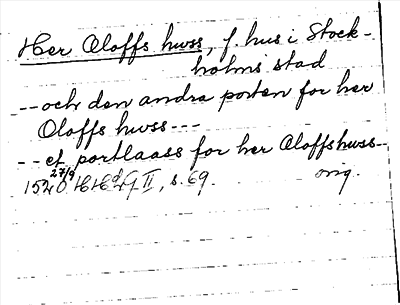 Her Oloffs hwss, f. hus i Stock-
holms stad
-- och den andra porten for her
Oloffs hwss---
-- et portlaass for her Oloffshwss--
orig.
27/9
1540 HH II, s. 69.